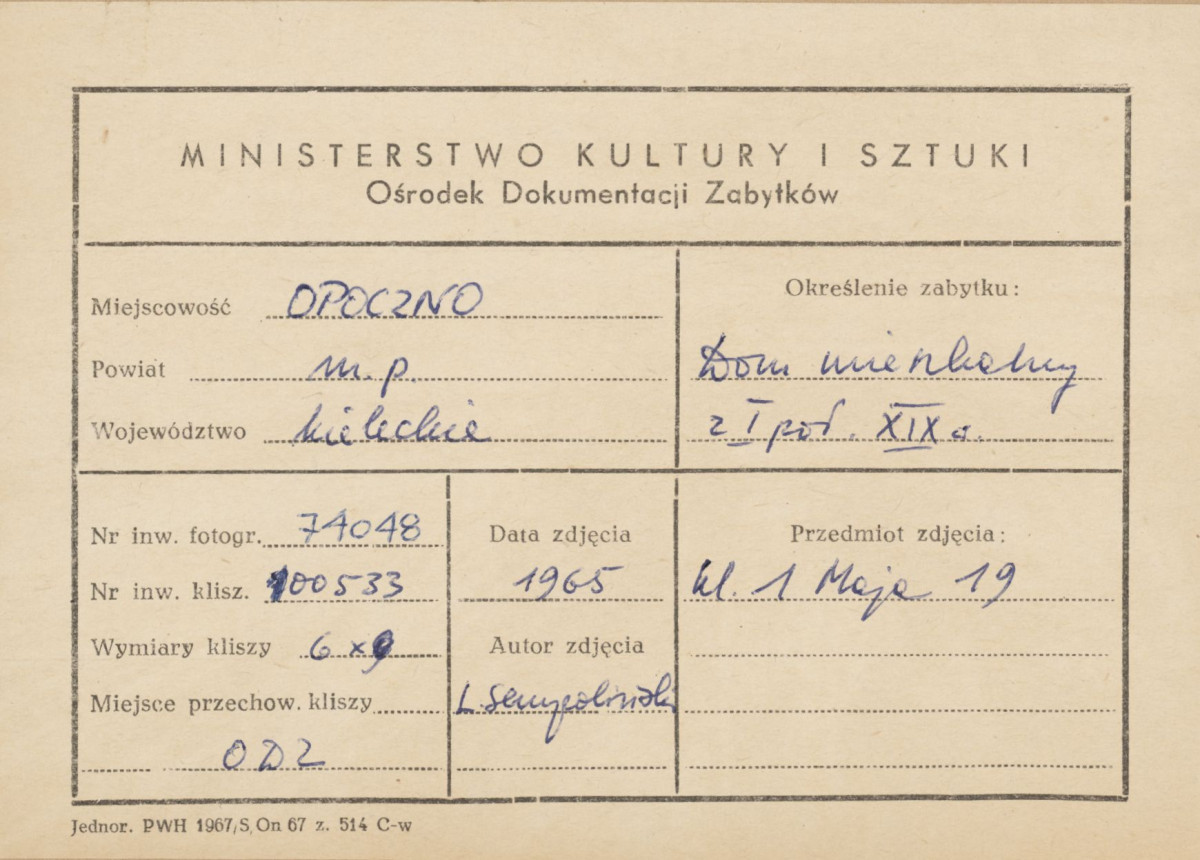 MINISTERSTWO KULTURY I SZTUKI
Ośrodek Dokumentacji Zabytków
Miejscowość OPOCZNO
Powiat m.p.
Województwo kieleckie
Określenie zabytku:
Dom mieszkalny
z I poł. XIX w.
Nr inw. fotogr. 74048
Nr inw. klisz. 100533
Wymiary kliszy 6 x 9
Miejsce przechow. kliszy
ODZ
Data zdjęcia
1965
Autor zdjęcia
L. Sempoliński
Przedmiot zdjęcia:
ul. 1 Maja 19
Jednor. PWH 1967/S, On 67 z. 514 C-w